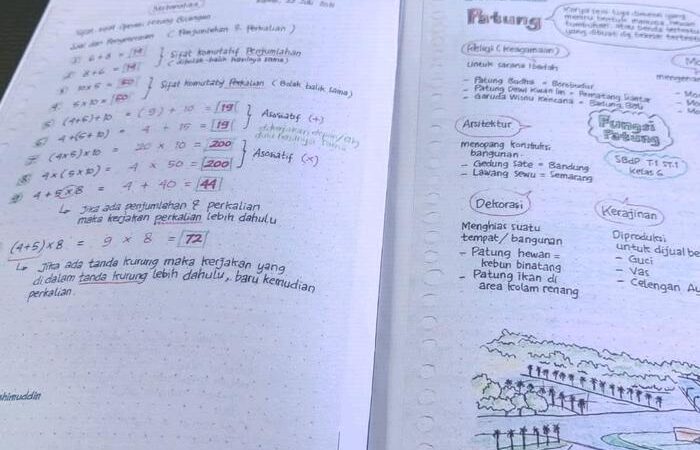 Matematika
Sifat-sifat Operasi Hitung Bilangan
Soal dan Pengerjaan (Penjumlahan & Perkalian)
① 6 + 8 = 14
② 8 + 6 = 14
} Sifat komutatif Penjumlahan
(dibolak-balik hasilnya sama)
③ 10 x 5 = 50
4 5 x 10 = 50
} Sifat komutatif Perkalian (Bolak balik sama)
⑤ (4+5)+10 = (9) + 10 = 19
⑥ 4+(5+10) = 4 + 15 = 19
} Asosiatif (+)
⑦ (4x5)x10 = 20 x 10 = 200
⑧ 4x(5x10) = 4 x 50 = 200
} Asosiatif (x)
⑨ 4+5x8 = 4 + 40 = 44
↳ Jika ada penjumlahan & perkalian
maka kerjakan perkalian lebih dahulu
(4+5)x8 = 9 x 8 = 72
↳ Jika ada tanda kurung maka kerjakan yang
di dalam tanda kurung lebih dahulu, baru kemudian
perkalian.
shimuddin
Patung
Karya seni tiga dimensi yang
meniru bentuk manusia, hewan,
tumbuhan, atau benda tertentu
yang dibuat dg teknik tertentu
Religi (Keagamaan)
untuk sarana ibadah
- Patung Budha = Borobudur
- Patung Dewi Kwan Im = Pematang Siantar
- Garuda Wisnu Kencana = Badung, Bali
Mo
mengen
- Mo
- Mo
Arsitektur
menopang konstruksi
bangunan.
- Gedung Sate = Bandung
- Lawang Sewu = Semarang
Fungsi
Patung
SBdP T1 ST.1
Kelas 6
Dekorasi
Menghias suatu
tempat / bangunan
- Patung hewan =
kebun binatang
- Patung ikan di
area kolam renang
Kerajinan
Diproduksi
untuk dijual be
- Guci
- Vas
- Celengan Au